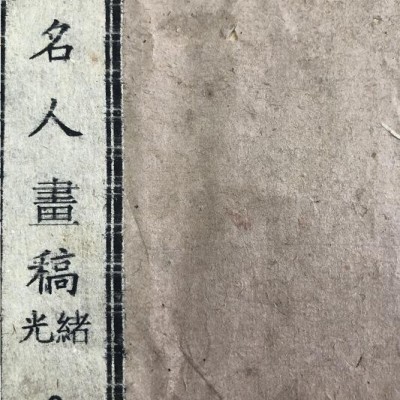 名人畫稿
光緒